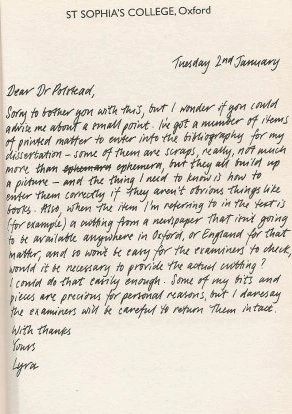 ST SOPHIA'S COLLEGE, Oxford
Tuesday 2nd January
Dear Dr Polstead,
Sorry to bother you with this, but I wonder if you could
advise me about a small point. I've got a number of items
of printed matter to enter into the bibliography for my
dissertation – some of them are scraps, really, not much
more than ephemera, but they all build up
a picture – and the thing I need to know is how to
enter them correctly if they aren't obvious things like
books. Also, when the item I'm referring to in the text is
(for example) a cutting from a newspaper that isn't going
to be available anywhere in Oxford, or England for that
matter, and so won't be easy for the examiners to check,
would it be necessary to provide the actual cutting?
I could do that easily enough. Some of my bits and
pieces are precious for personal reasons, but I daresay
the examiners will be careful to return them intact.
With thanks
Yours
Lyra